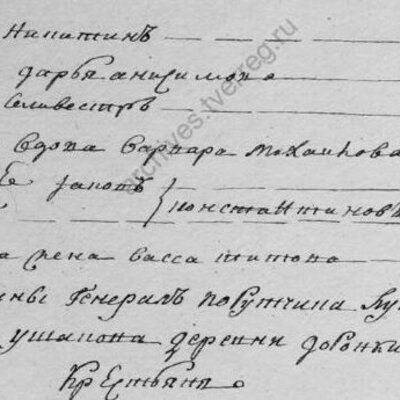 Никитинъ
дарья анисимова
Селивестръ
вдова варвара михаилова
Е яковъ
константиновъ
жена васса титова
Генералъ порутчика
ушакова деревни доронки
крестьянъ
archives.tverreg.ru